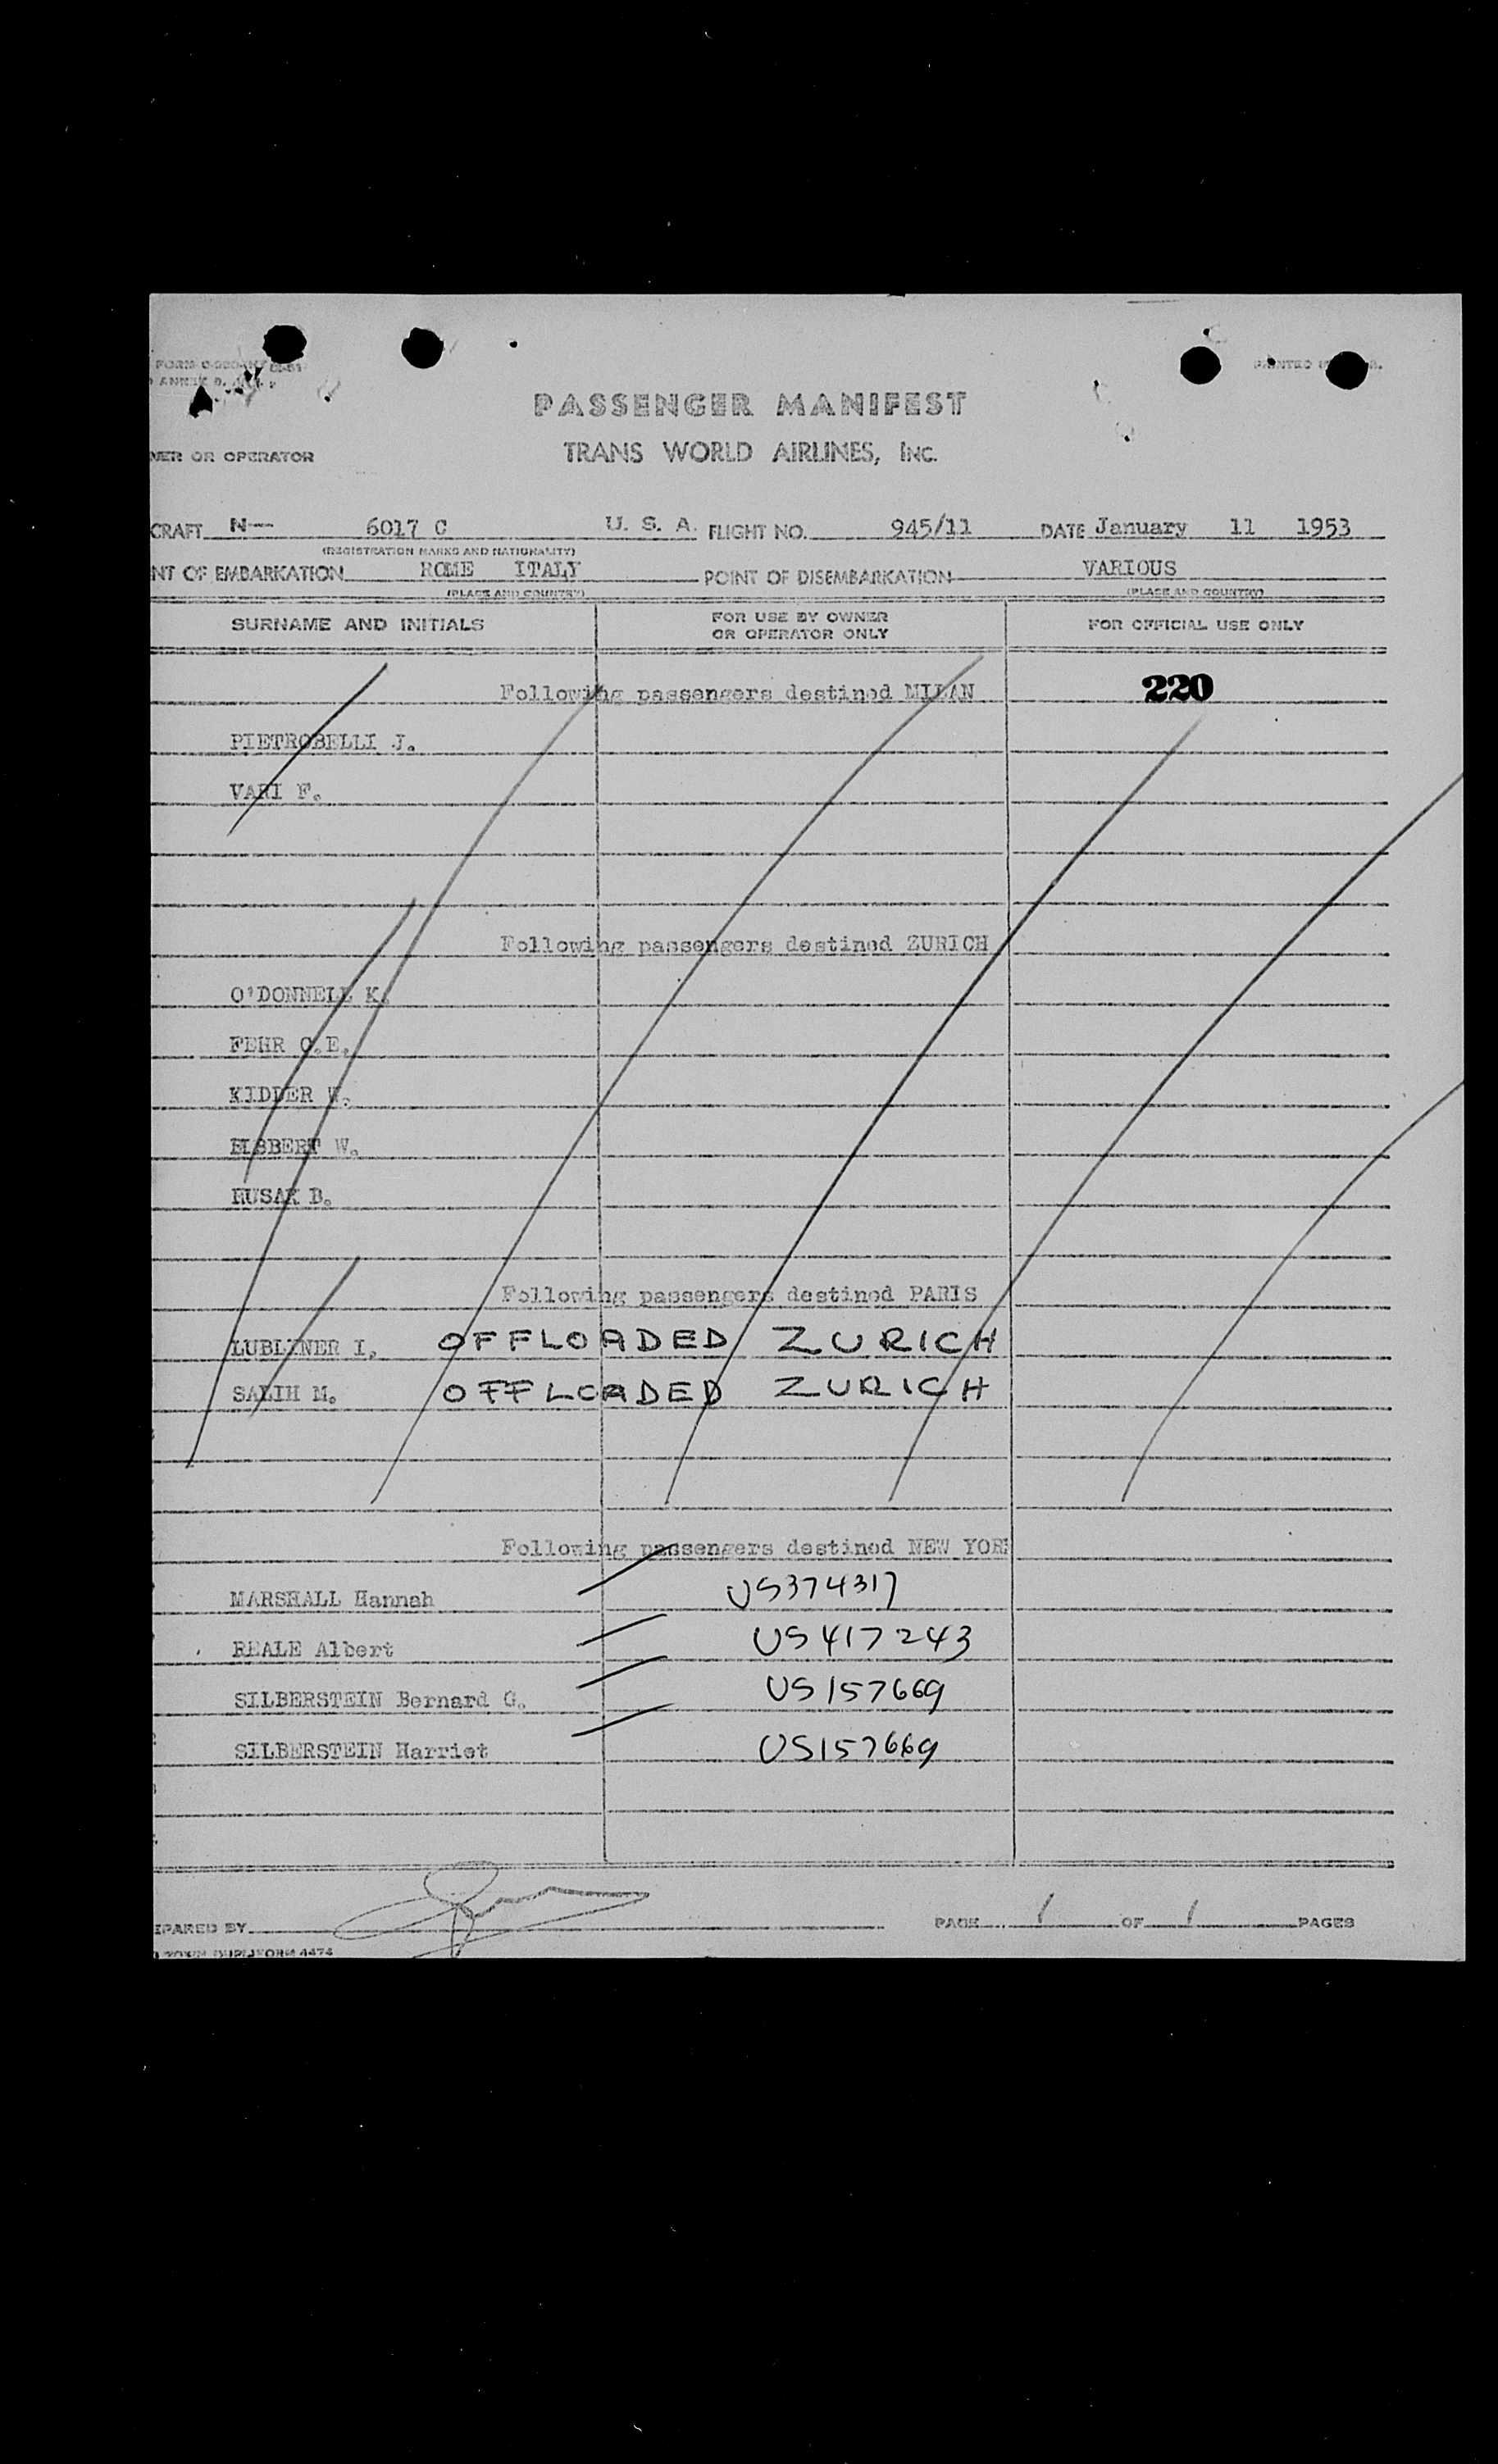 FORM
ANNEX 9.
PRINTED
PASSENGER MANIFEST
TRANS WORLD AIRLINES, INC.
OR OPERATOR
CRAFT N— 6017 C U. S. A. FLIGHT NO. 945/11 DATE January 11 1953
(REGISTRATION MARKS AND NATIONALITY)
NT OF EMBARKATION ROME ITALY POINT OF DISEMBARKATION VARIOUS
(PLACE AND COUNTRY) (PLACE AND COUNTRY)
SURNAME AND INITIALS FOR USE BY OWNER OR OPERATOR ONLY FOR OFFICIAL USE ONLY
Following passengers destined MILAN 220
PIETROBELLI J.
VARI F.
Following passengers destined ZURICH
O'DONNELL K.
FEHR C.E.
KIDDER W.
W.
B.
Following passengers destined PARIS
LUBLINER I. OFFLOADED ZURICH
SALIH M. OFFLOADED ZURICH
Following passengers destined NEW YOR
MARSHALL Hannah US374317
REALE Albert US417243
SILBERSTEIN Bernard G. US157669
SILBERSTEIN Harriet US157669
EPARED BY PAGE 1 OF 1 PAGES
FORM 4474